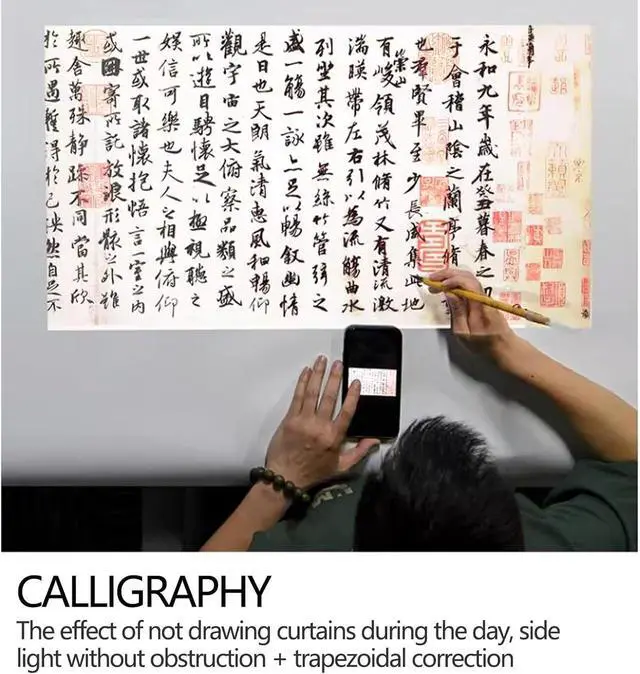 永和九年歲在癸丑暮春之初
于會稽山陰之蘭亭脩
也羣賢畢至少長咸集此地
有崇山峻領茂林脩竹又有清流激
湍暎帶左右引以為流觴曲水
列坐其次雖無絲竹管弦之
盛一觴一詠亦足以暢敘幽情
是日也天朗氣清惠風和暢仰
觀宇宙之大俯察品類之盛
所以遊目騁懷足以極視聽之
娛信可樂也夫人之相與俯仰
一世或取諸懷抱悟言一室之內
或因寄所託放浪形骸之外雖
趣舍萬殊靜躁不同當其欣
於所遇暫得於己怏然自足不
CALLIGRAPHY
The effect of not drawing curtains during the day, side
light without obstruction + trapezoidal correction